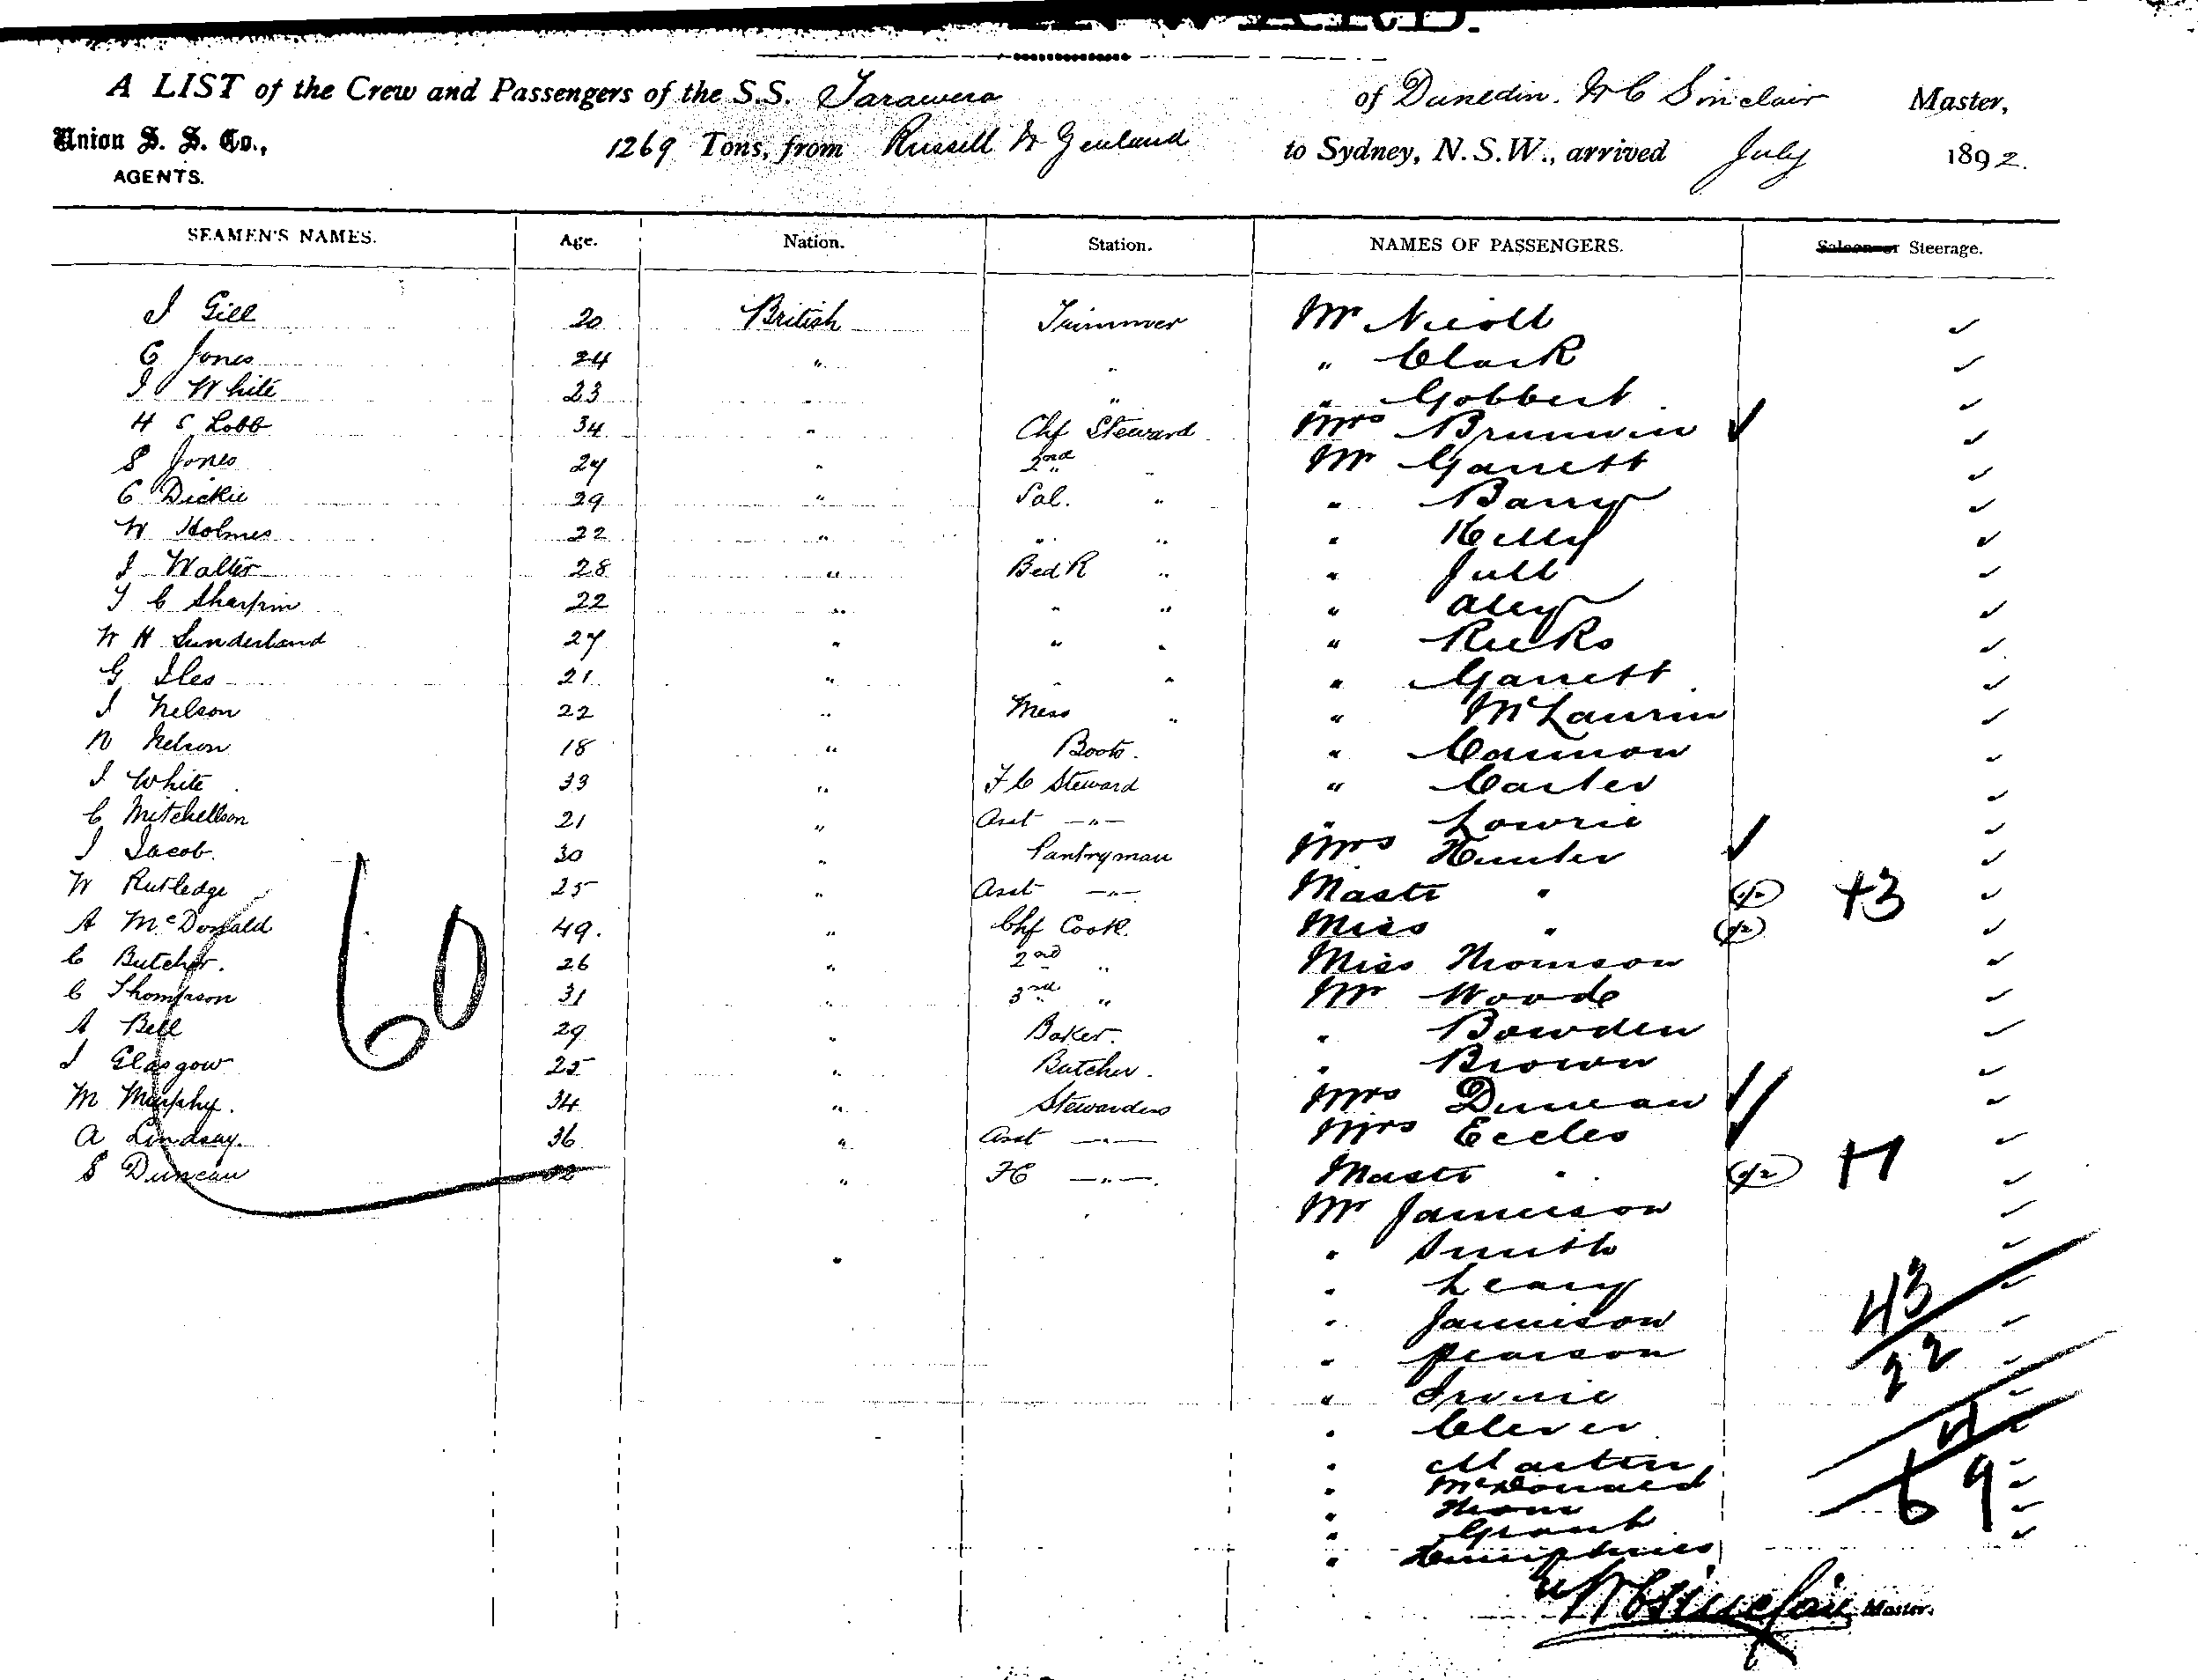 A LIST of the Crew and Passengers of the S.S. Tarawera of Dunedin. W C Sinclair Master,
Union S. S. Co., 1269 Tons, from Russell N Zealand to Sydney, N.S.W., arrived July 1892.
AGENTS.
SEAMEN'S NAMES. Age. Nation. Station. NAMES OF PASSENGERS. Saloon or Steerage.
J Gill 20 British Trimmer Mr Nicoll ✓
C Jones 24 " " " Clark ✓
J White 23 " " " Gobbert ✓
H S Lobb 34 " Chf Steward Mrs Brunwin ✓ ✓
S Jones 27 " 2nd " Mr Garrett ✓
C Dickie 29 " Sal. " " Barry ✓
W Holmes 22 " " " " Kelly ✓
J Walter 28 " Bed R " " Jull ✓
T C Sharpin 22 " " " " Aley ✓
W H Sunderland 27 " " " " Ricks ✓
G Iles 21 " " " " Garrett ✓
J Nelson 22 " Mess " " McLaurin ✓
N Nelson 18 " Boots. " Cannon ✓
J White 33 " F C Steward " Carter ✓
C Mitchellson 21 " Asst —"— " Lowrie ✓
J Jacob 30 " Pantryman Mrs Hunter ✓ ✓
W Rutledge 25 " Asst —"— Mastr " (1/2) +3 ✓
A McDonald 49. " Chf Cook. Miss " (1/2) ✓
C Butcher. 26 " 2nd " Miss Thomson ✓
C Thompson 31 " 3rd " Mr Woods ✓
A Bell 29 " Baker. " Bowden ✓
J Glasgow 25 " Butcher. " Brown ✓
M Murphy. 34 " Stewardess Mrs Duncan ✓ ✓
A Lindsay. 36 " Asst —"— Mrs Eccles ✓ ✓
S Duncan 32 " F C —"—. Mastr " (1/2) +1 ✓
60
Mr Jamieson ✓
" Smith ✓
" Leary ✓
43
" Jamieson ✓
" Pearson ✓
22
" Irvine ✓
" Clever ✓
4
" Martin ✓
" McDonald ✓
69
" Thom ✓
" Grant ✓
" Humphries
W C Sinclair Master.